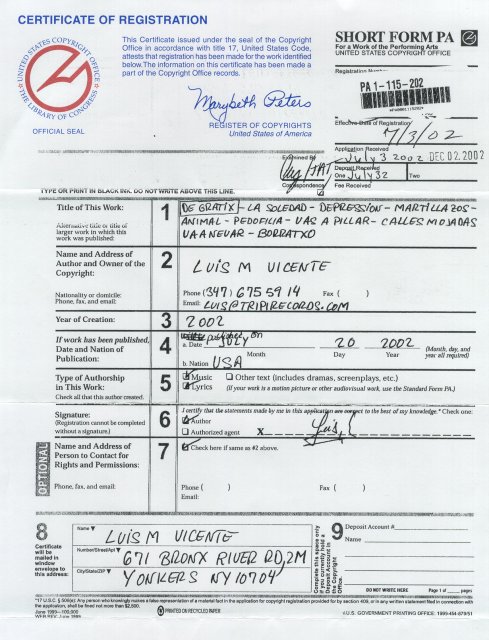 CERTIFICATE OF REGISTRATION
UNITED STATES COPYRIGHT OFFICE
THE LIBRARY OF CONGRESS
OFFICIAL SEAL
This Certificate issued under the seal of the Copyright
Office in accordance with title 17, United States Code,
attests that registration has been made for the work identified
below. The information on this certificate has been made a
part of the Copyright Office records.
Marybeth Peters
REGISTER OF COPYRIGHTS
United States of America
SHORT FORM PA
For a Work of the Performing Arts
UNITED STATES COPYRIGHT OFFICE
Registration
PA 1-115-202
Effective Date of Registration
7/3/02
Application Received
July 3 2002 DEC 02.2002
Examined By
Deposit Received
One July 32 Two
Correspondence
Fee Received
TYPE OR PRINT IN BLACK INK. DO NOT WRITE ABOVE THIS LINE.
Title of This Work:
Alternative title or title of
larger work in which this
work was published:
1
DE GRATIX - LA SOLEDAD - DEPRESSION - MARTILLAZOS -
ANIMAL - PEDOFILIA - VAS A PILLAR - CALLES MOJADAS
VA A NEVAR - BORRATXO
Name and Address of
Author and Owner of the
Copyright:
Nationality or domicile:
Phone, fax, and email:
2
LUIS M VICENTE
Phone (347) 675 59 14 Fax ( )
Email: LUIS@TRIPIRECORDS.COM
Year of Creation:
3
2002
If work has been published,
Date and Nation of
Publication:
4
published on
a. Date JULY 20 2002
Month Day Year
(Month, day, and
year all required)
b. Nation USA
Type of Authorship
in This Work:
Check all that this author created.
5
Music Other text (includes dramas, screenplays, etc.)
Lyrics (If your work is a motion picture or other audiovisual work, use the Standard Form PA.)
Signature:
(Registration cannot be completed
without a signature.)
6
I certify that the statements made by me in this application are correct to the best of my knowledge.* Check one:
Author
Authorized agent X
OPTIONAL
Name and Address of
Person to Contact for
Rights and Permissions:
Phone, fax, and email:
7
Check here if same as #2 above.
Phone ( ) Fax ( )
Email:
8
Certificate
will be
mailed in
window
envelope to
this address:
Name
LUIS M VICENTE
Number/Street/Apt
671 BRONX RIVER RD, 2M
City/State/ZIP
YONKERS NY 10704
Complete this space only
if you currently hold a
Deposit Account in
the Copyright
Office.
9
Deposit Account #
Name
DO NOT WRITE HERE Page 1 of pages
*17 U.S.C. § 506(e): Any person who knowingly makes a false representation of a material fact in the application for copyright registration provided for by section 409, or in any written statement filed in connection with
the application, shall be fined not more than $2,500.
June 1999—100,000
WEB REV: June 1999
PRINTED ON RECYCLED PAPER
U.S. GOVERNMENT PRINTING OFFICE: 1999-454-879/51